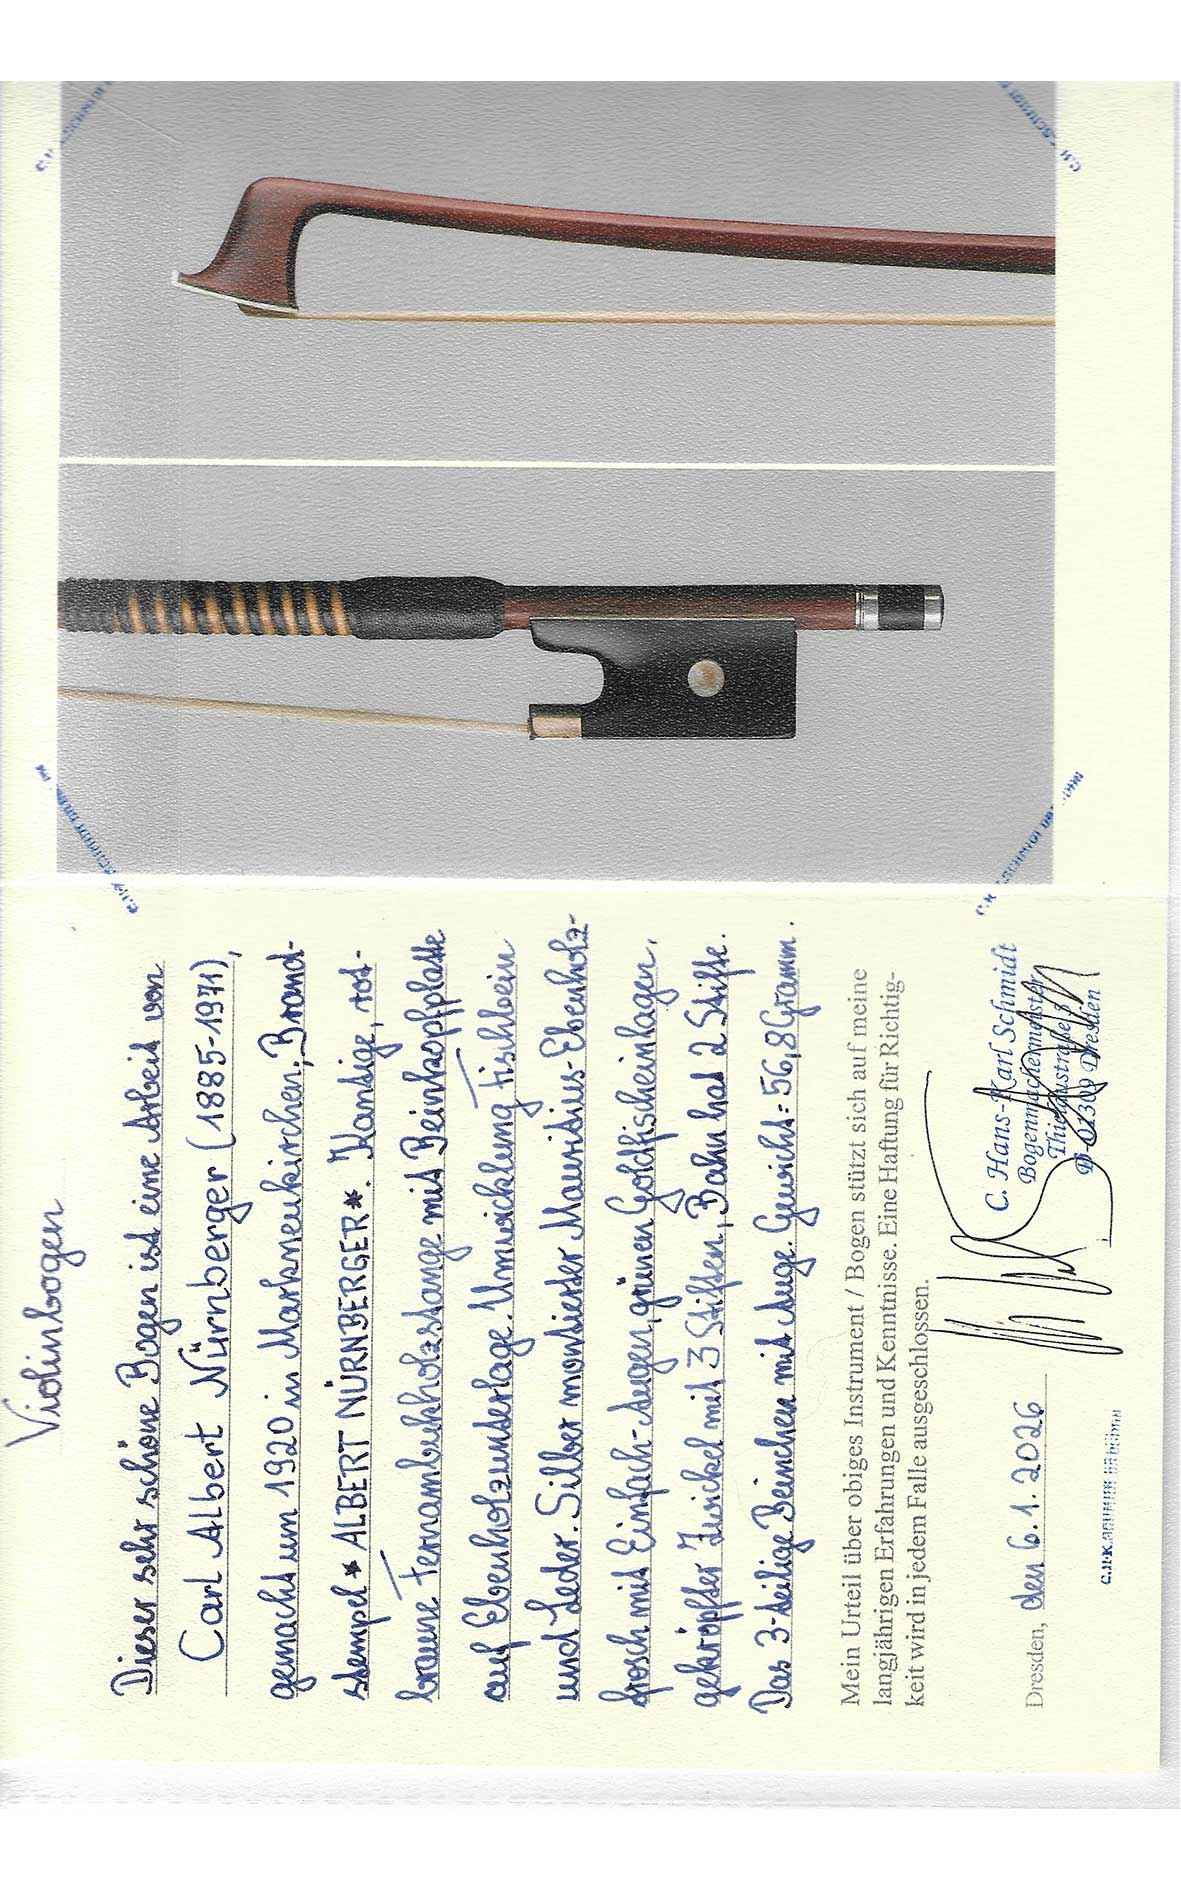 Violinbogen
Dieser sehr schöne Bogen ist eine Arbeit von
Carl Albert Nürnberger (1885-1971),
gemacht um 1920 in Markneukirchen, Brand-
stempel * ALBERT NÜRNBERGER *. Kantige, rot-
braune Fernambukholzstange mit Beinkopfplatte
auf Ebenholzunterlage. Umwicklung Fischbein
und Leder. Silber montierter Mauritius-Ebenholz-
frosch mit Einfach-Augen, grünen Goldfischeinlagen,
gekröpfter Zwickel mit 3 Stiften, Bahn hat 2 Stifte.
Das 3-teilige Beinchen mit Auge. Gewicht: 56,8 Gramm.
Mein Urteil über obiges Instrument / Bogen stützt sich auf meine
langjährigen Erfahrungen und Kenntnisse. Eine Haftung für Richtig-
keit wird in jedem Falle ausgeschlossen.
C. Hans-Karl Schmidt
Bogenmachermeister
D-01309 Dresden
Dresden, den 6.1.2026